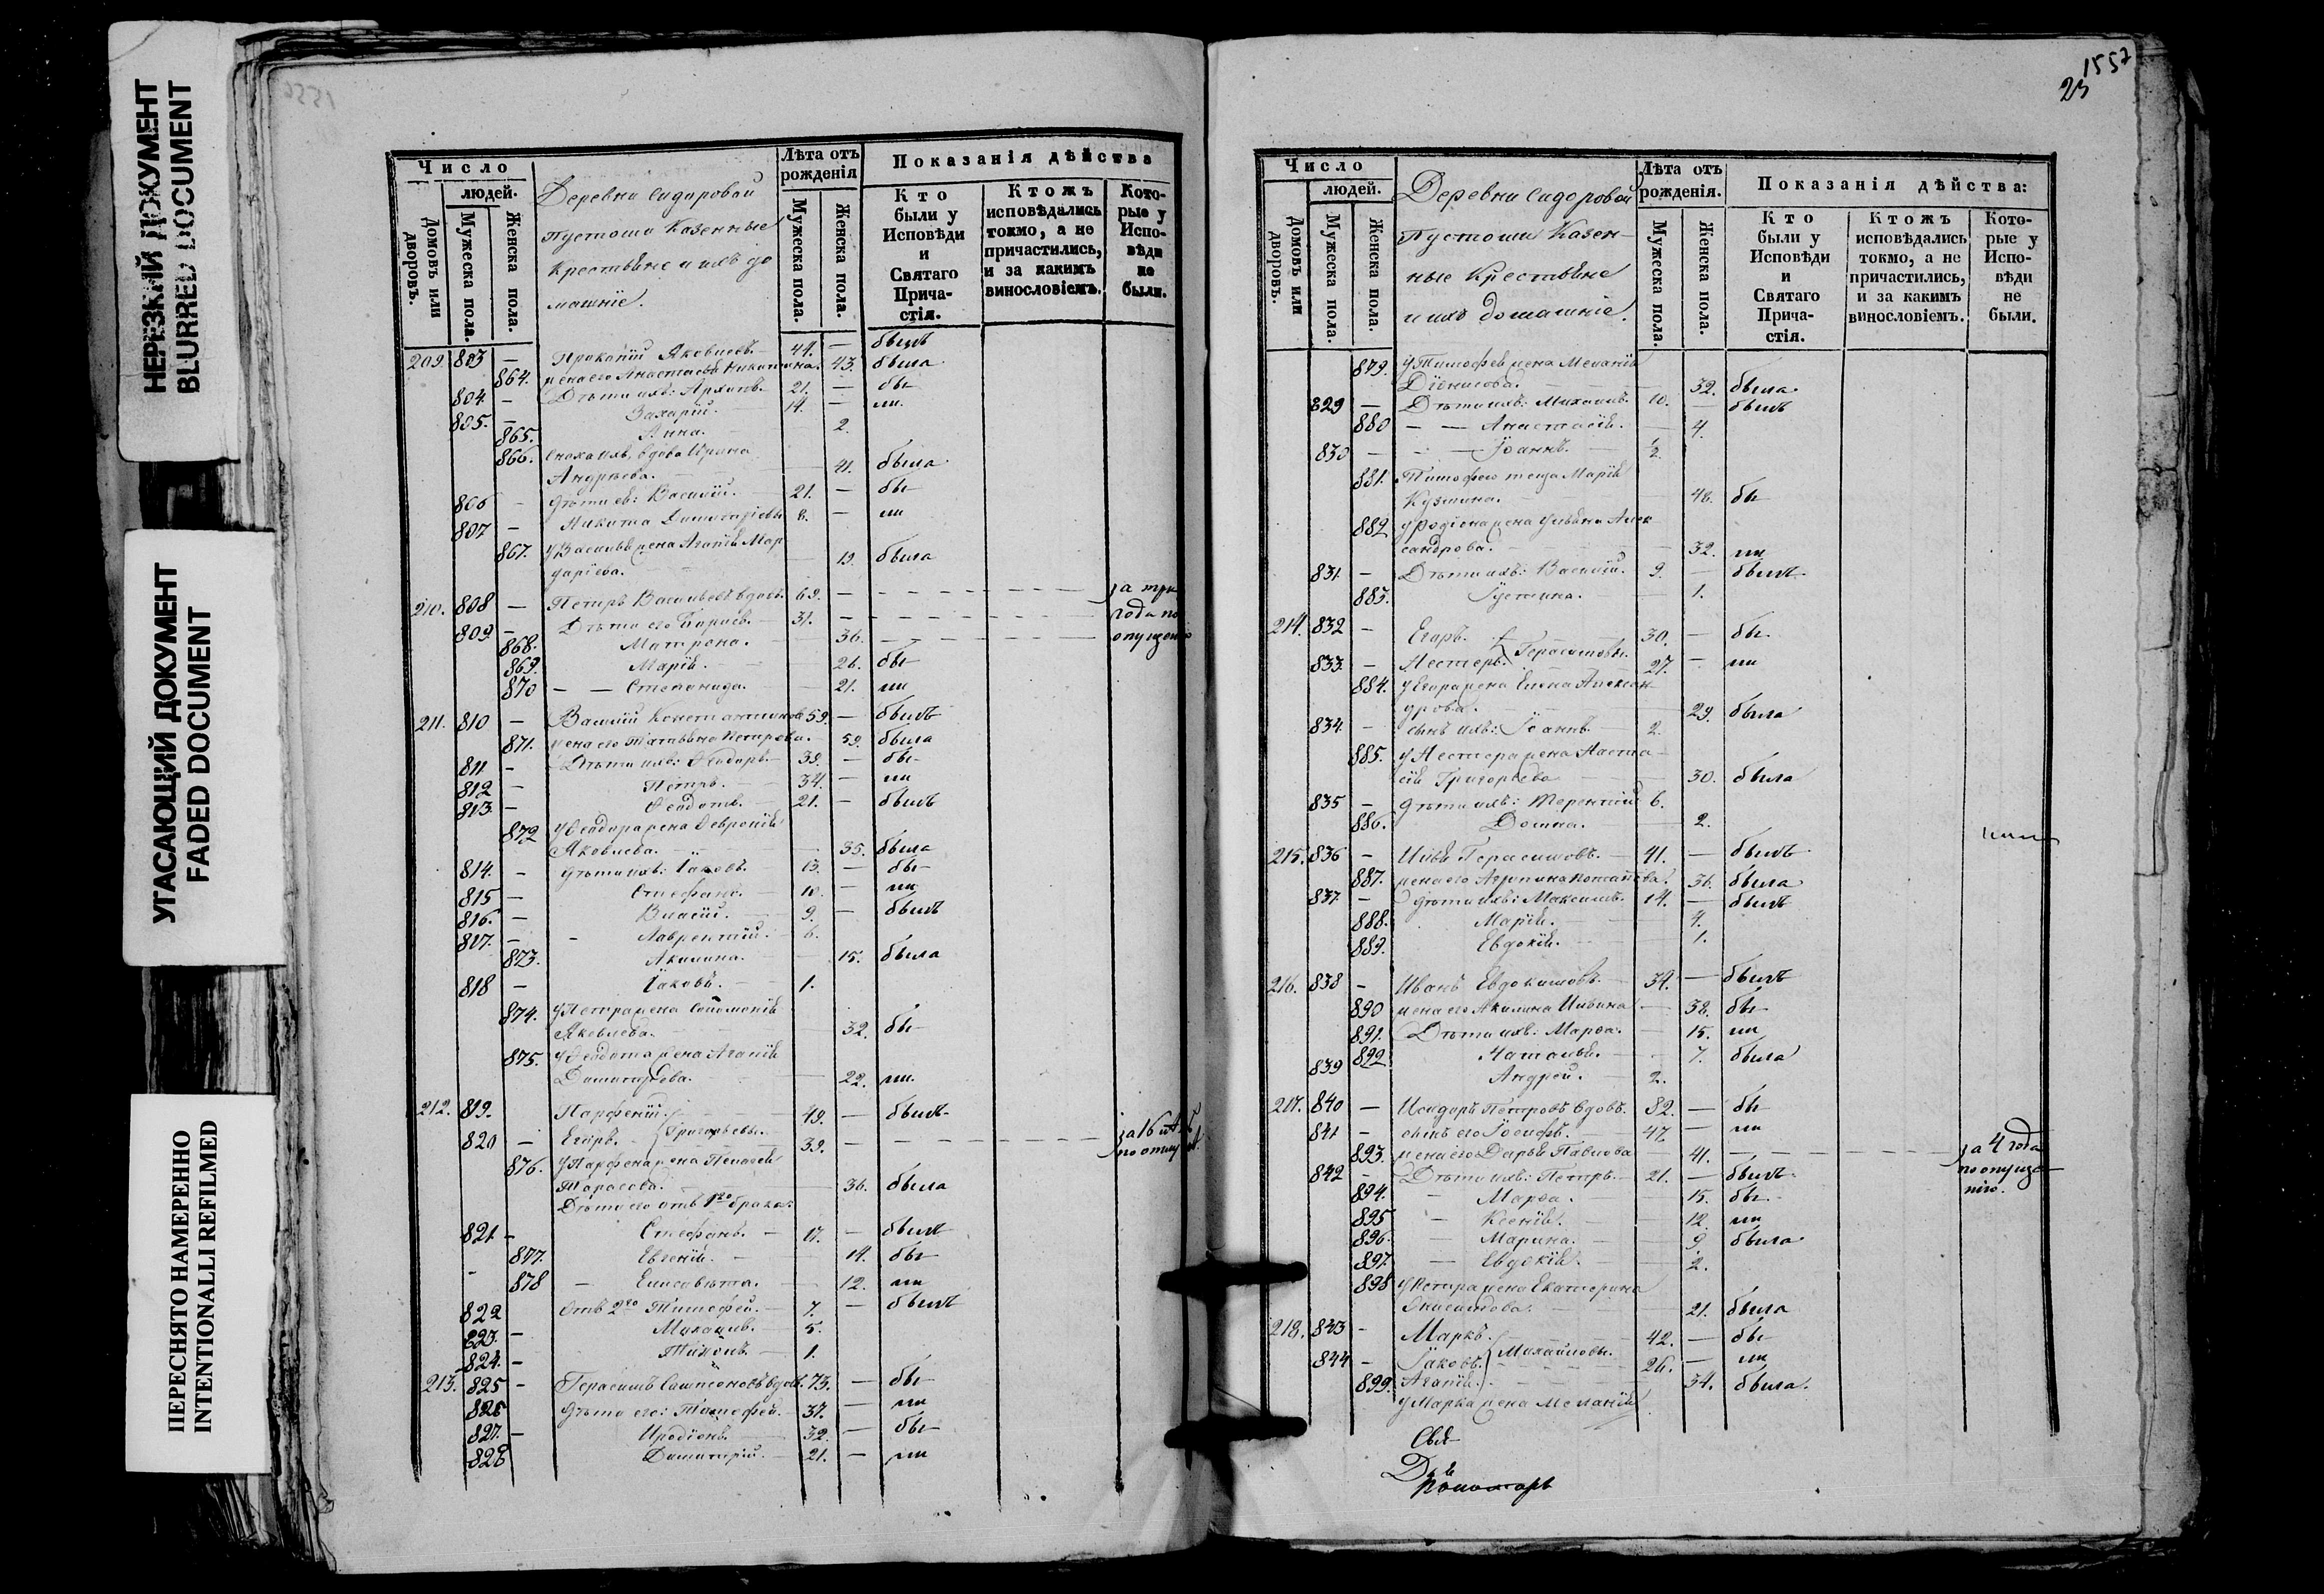 НЕРЕЗКИЙ ДОКУМЕНТ
BLURRED DOCUMENT
УГАСАЮЩИЙ ДОКУМЕНТ
FADED DOCUMENT
ПЕРЕСНЯТО НАМЕРЕННО
INTENTIONALLI REFILMED
Число
людей.
Домовъ или дворовъ.
Мужеска пола.
Женска пола.
Деревни Сидоровой
Пустоши Казенные
Крестьяне и ихъ до
машніе.
Лѣта отъ рожденія
Мужеска пола.
Женска пола.
Показанія дѣйства
Кто были у Исповѣди и Святаго Причастія.
Ктожъ исповѣдались токмо, а не причастились, и за какимъ винословіемъ.
Которые у Исповѣди не были.
209. 803 — Прокопій Яковлевъ. 44. — былъ
864. жена его Анастасія Никитина. 43. была
804. — Дѣти ихъ: Архипъ. 21. — бы
805. — Захарій. 14. — ли
865. Анна. 2.
866. Сноха ихъ, вдова Ирина
Андреева. — 41. была
806 — дѣти ея: Василій. 21. — бы
807 — Никита Димитріевы 8. — ли
867. у Василья жена Агапія Мар
даріева. 19. была
210. 808 — Петръ Васильевъ вдовъ. 69. — за три
809 — Дѣти его: 31. — года по
868. Матрона. 36. — опущенію
869. Марія. 26. бы
870 — Степанида. 21. ли
211. 810 — Василій Константиновъ 59. — былъ
871. жена его Татьяна Петрова. 59. была
811. — Дѣти ихъ: Ѳеодоръ. 39. — бы
812 — Петръ. 34. — ли
813. — Ѳеодотъ. 21. — былъ
872 у Ѳеодора жена Февронія
Яковлева. 35. была
814. — дѣти ихъ: Іаковъ. 13. — бы
815 — Стефанъ. 10. — ли
816. — Власій. 9. — былъ
817. — Лаврентій. 6.
873. Акилина. 15. была
818 — Іаковъ. 1.
874. у Петра жена Соломонія
Яковлева. 32. бы
875. у Ѳеодота жена Агапія
Димитріева. 22. ли
212. 819. Парфеній. 49. — былъ
820 — Егоръ. Григорьевы. 39. — за 16 лѣтъ
876. у Парфена жена Пелагія
Тарасова. 36. была
Дѣти его отъ 1го брака:
821 — Стефанъ. 17. — былъ
877. Евгенія. 14. бы
878 — Елисавета. 12. ли
822 Отъ 2го Тимофей. 7. — былъ
823. — Михаилъ. 5.
824. — Тихонъ. 1.
213. 825 — Герасимъ Сампсоновъ вдовъ. 73. — бы
826 дѣти его: Тимофей. 37. — ли
827. — Иродіонъ. 32. — бы
828 Димитрій. 21. — ли
1557
23
Число
людей.
Домовъ или дворовъ.
Мужеска пола.
Женска пола.
Деревни Сидоровой
Пустоши Казен-
ные Крестьяне
и ихъ домашніе.
Лѣта отъ рожденія.
Мужеска пола.
Женска пола.
Показанія дѣйства:
Кто были у Исповѣди и Святаго Причастія.
Ктожъ исповѣдались токмо, а не причастились, и за какимъ винословіемъ.
Которые у Исповѣди не были.
879. у Тимофея жена Меланія
Діонисова. 32. была
829 — Дѣти ихъ: Михаилъ. 10. — былъ
880 — — Анастасія. 4.
830 — — Іоаннъ. ½.
881. Тимофею теща Марія
Кузмина. 48. бы
882 у Родіона жена Ульяна Алек
сандрова. 32. ли
831. — Дѣти ихъ: Василій. 9. — былъ
883. Іустина. 1.
214. 832 — Егоръ. Герасимовы. 30. — бы
833. — Нестеръ. 27. — ли
884. у Егора жена Елена Алексан
дрова. 29. была
834. — сынъ ихъ: Іоаннъ. 2.
885. у Нестера жена Наста-
сія Григорьева. 30. была
835 — дѣти ихъ: Терентій 6.
886. Домна. 2.
215. 836 — Илья Герасимовъ. 41. — былъ
887. жена его Агрипина Потапова. 36. была
837. — дѣти ихъ: Максимъ. 14. — былъ
888. Марія. 4.
889. Евдокія. 1.
216. 838 — Иванъ Евдокимовъ. 34. — былъ
890 жена его Акилина Ильина 38. бы
891. Дѣти ихъ: Марѳа. 15. ли
892 Наталья. 7. была
839 Андрей. 2.
217. 840 — Исидоръ Петровъ вдовъ. 82. — бы
841 — сынъ его Іосифъ. 47. — ли
893. жена его Дарья Павлова 41. — за 4 года
842 Дѣти ихъ: Петръ. 21. — былъ по опуще-
894. — Марѳа. 15. бы нію.
895 — Ксенія. 12. ли
896. — Марина. 9. была
897. — Евдокія. 2.
898 у Петра жена Екатерина
Онисимова. 21. была
218. 843 — Маркъ. Михайловы. 42. — бы
844 — Іаковъ. 26. — ли
899. Агапія. 34. была.
у Марка жена Меланія
Свя
Пономарь